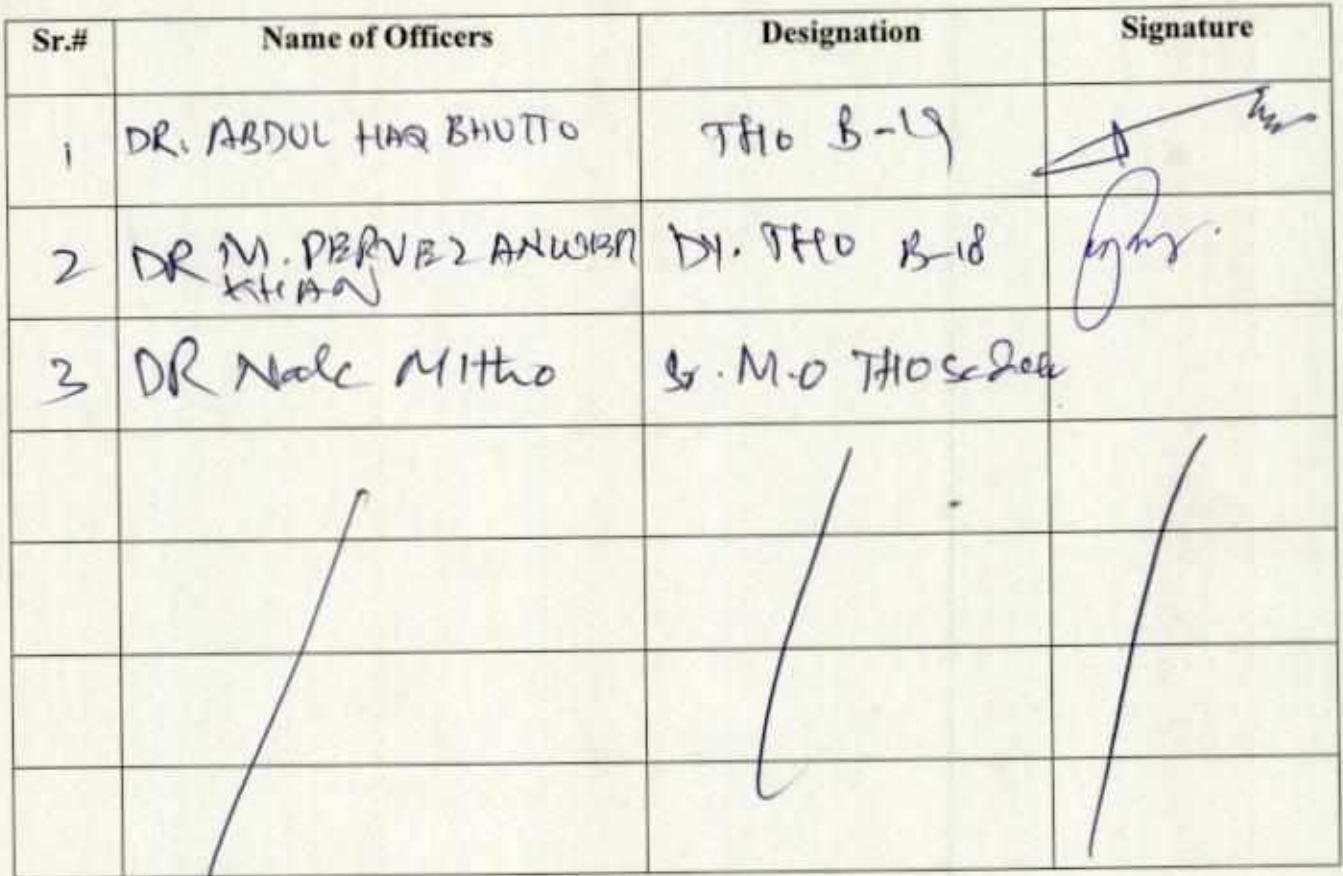 Sr.# Name of Officers Designation Signature
1 DR. ABDUL HAQ BHUTTO THO B-19
2 DR M. PERVEZ ANWER DY. THO B-18
KHAN
3 DR Mitho Sr. M.O THO